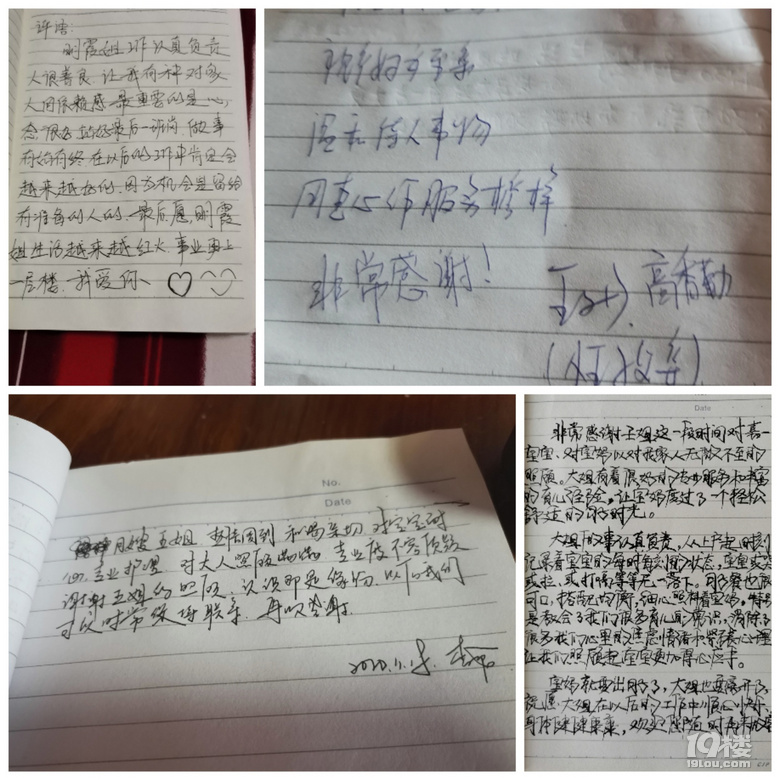 评语:
明霞姐工作认真负责
人很善良,让我有种对家
人间很亲感 最重要的是心
态很好 站好最后一班岗 做事
有始有终 在以后的工作中肯定会
越来越好的,因为机会是留给
有准备的人的、最后愿,明霞
姐生活越来越红火、事业更上
一层楼、我爱你、♡
温和待人事物
用真心作服务榜样
非常感谢!
高香勤
No.
Date
月嫂王姐 护理周到 和蔼亲切 对宝宝耐
心 专业护理 对大人照顾 专业度不容质疑
谢谢王姐的照顾、认识即是缘份 以后我们
可以时常保持联系、再次感谢
2020.11.15
Date
非常感谢王姐这一段时间对
宝宝、对宝妈以及对我家人无微不至的
照顾。大姐有着很好的专业服务和丰富
的育儿经验,让宝妈度过了一个轻松
舒适的月子时光。
大姐做事认真负责,从上户起时刻
记录着宝宝的每时每刻的状态,宝宝
或拉,或打嗝等等无一落下。月子餐也很
可口,搭配均衡,细心照料着宝妈,特别
是教会了我们很多育儿的常识,消除了
很多我们心里的焦虑情绪和紧张心理
让我们照顾起宝宝更加得心应手。
宝妈就要出月了,大姐也要离开了,
祝愿大姐在以后的工作中顺心顺利、
身体健健康康,欢迎随时再来
19楼
19lou.com